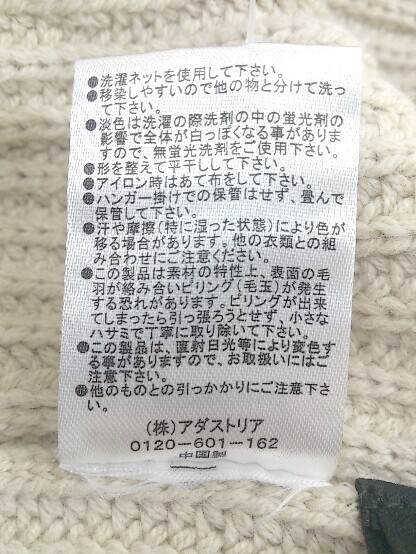 ●洗濯ネットを使用して下さい。
●移染しやすいので他の物と分けて洗っ
て下さい。
●淡色は洗濯の際洗剤の中の蛍光剤の
影響で全体が白っぽくなる事がありま
すので、無蛍光洗剤をご使用下さい。
●形を整えて平干しして下さい。
●アイロン時はあて布をして下さい。
●ハンガー掛けでの保管はせず、畳んで
保管して下さい。
●汗や摩擦(特に湿った状態)により色が
移る場合があります。他の衣類との組
み合わせにご注意ください。
●この製品は素材の特性上、表面の毛
羽が絡み合いピリング(毛玉)が発生
する恐れがあります。ピリングが出来
てしまったら引っ張ろうとせず、小さな
ハサミで丁寧に取り除いて下さい。
●この製品は、直射日光等により変色す
る事がありますので、お取扱いにはご
注意下さい。
●他のものとの引っかかりにご注意下さ
い。
(株)アダストリア
0120-601-162
中国製